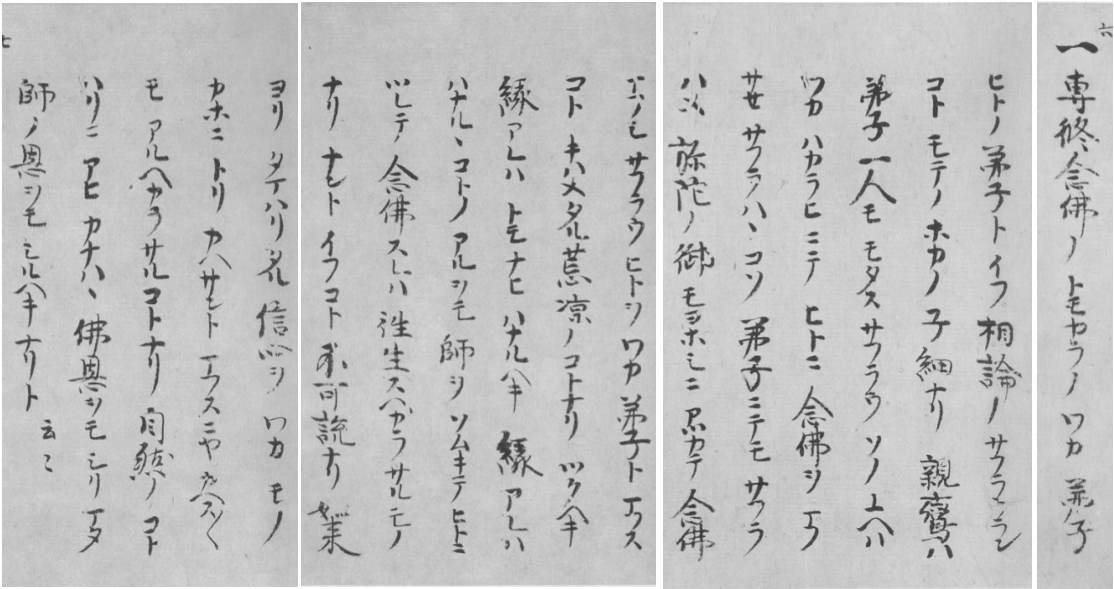 六
一 専修念佛ノ トモカラノ ワカ 弟子
ヒトノ 弟子ト イフ 相論ノ サフラウラン
コト モテノ ホカノ 子細ナリ 親鸞ハ
弟子 一人モ モタス サフラウ ソノユヘハ
ワカ ハカラヒニテ ヒトニ 念佛ヲ マフ
サセ サフラハヽコソ 弟子ニテモ サフラ
ハメ 弥陀ノ 御モヨホシニ アツカテ 念佛
マフシ サフラウ ヒトヲ ワカ 弟子ト マフス
コト キハメタル 荒凉ノ コトナリ ツクヘキ
縁アレハ トモナヒ ハナルヘキ 縁アレハ
ハナルヽ コトノ アルヲモ 師ヲ ソムキテ ヒトニ
ツレテ 念佛スレハ 往生スヘカラサルモノ
ナリ ナント イフコト 不可説ナリ 如来
ヨリ タマハリタル 信心ヲ ワカ モノ
カホニ トリ カヘサント マフスニヤ カヘス〱
モ アルヘカラサル コトナリ 自然ノ コト
ハリニ アヒ カナハヽ 佛恩ヲモ シリ マタ
師ノ恩ヲモ シルヘキナリト 云々
七